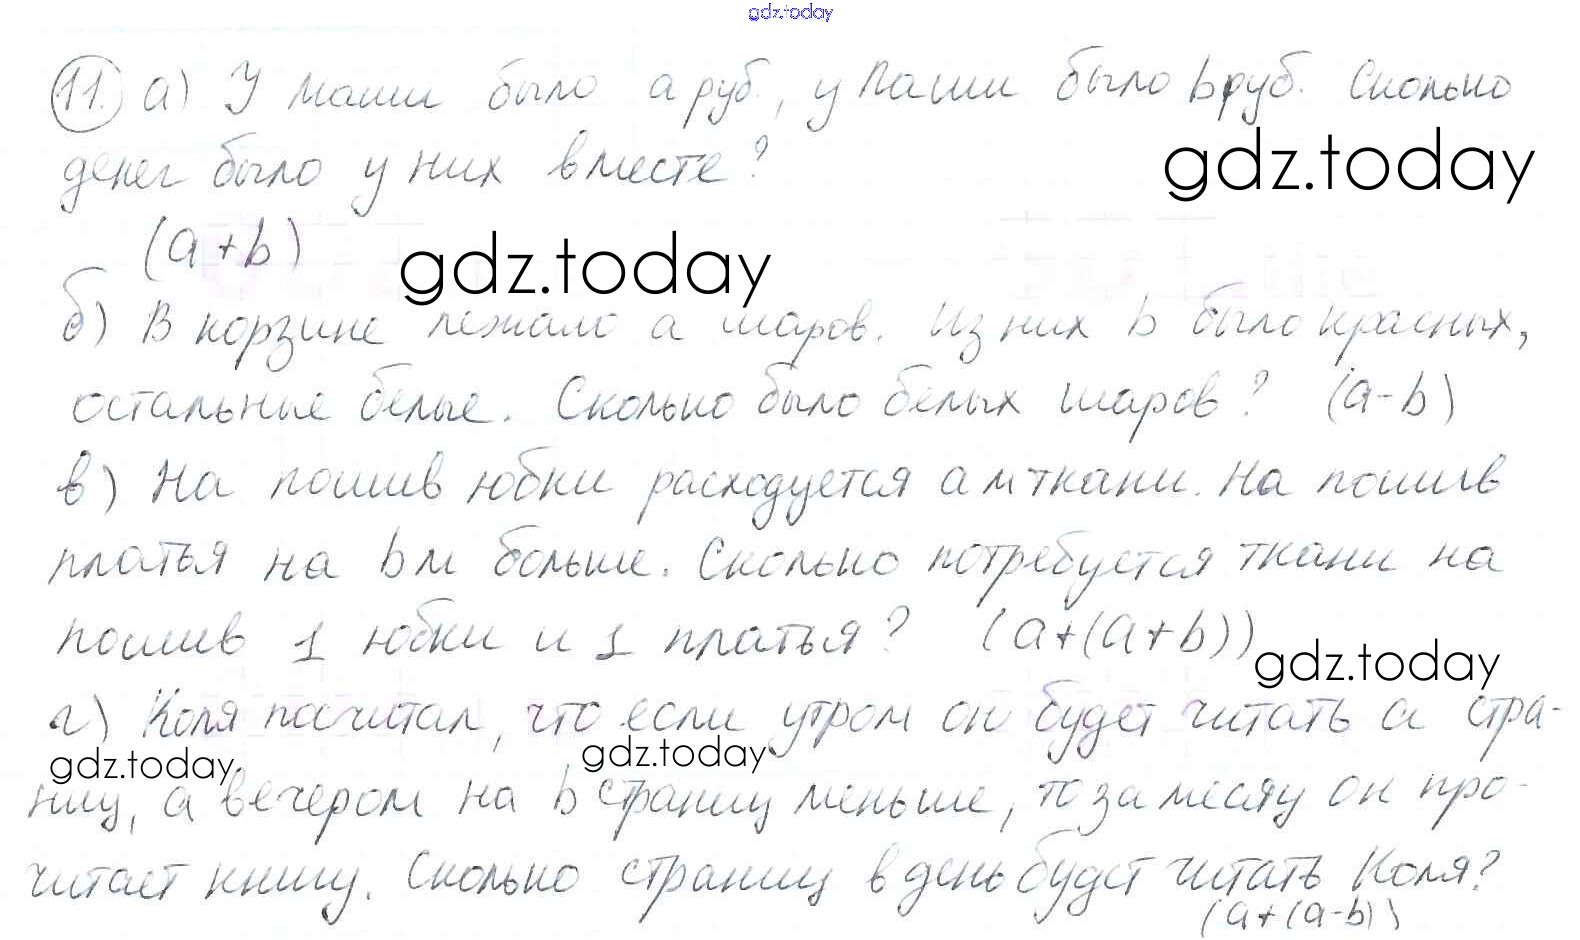 gdz.today
11. а) У Маши было a руб., у Паши было b руб. Сколько
денег было у них вместе?
gdz.today
(a+b)
gdz.today
б) В корзине лежало a шаров. Из них b было красных,
остальные белые. Сколько было белых шаров? (a-b)
в) На пошив юбки расходуется a м ткани. На пошив
платья на b м больше. Сколько потребуется ткани на
пошив 1 юбки и 1 платья? (a+(a+b))
gdz.today
г) Коля посчитал, что если утром он будет читать a стра-
gdz.today gdz.today
ниц, а вечером на b страниц меньше, то за месяц он про-
читает книгу. Сколько страниц в день будет читать Коля?
(a+(a-b))